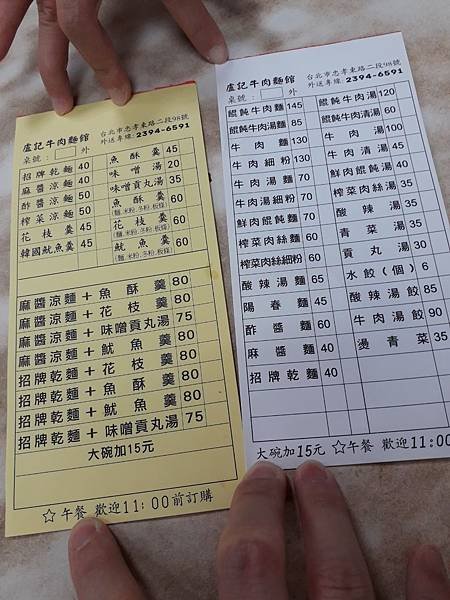 盧記牛肉麵館
台北市忠孝東路二段98號
桌號：
外
外送專線：2394-6591
招牌乾麵 40
麻醬涼麵 50
酢醬涼麵 50
榨菜涼麵 50
花枝羹 45
韓國魷魚羹 45
魚酥羹 45
味噌湯 20
味噌貢丸湯 35
魚酥羹 60
(麵.米粉.冬粉.板條)
花枝羹 60
(麵.米粉.冬粉.板條)
魷魚羹 60
(麵.米粉.冬粉.板條)
麻醬涼麵＋魚酥羹 80
麻醬涼麵＋花枝羹 80
麻醬涼麵＋味噌貢丸湯 75
麻醬涼麵＋魷魚羹 80
招牌乾麵＋花枝羹 80
招牌乾麵＋魚酥羹 80
招牌乾麵＋魷魚羹 80
招牌乾麵＋味噌貢丸湯 75
大碗加15元
☆午餐 歡迎11：00前訂購
盧記牛肉麵館
台北市忠孝東路二段98號
桌號：
外
外送專線：2394-6591
餛飩牛肉麵 145
餛飩牛肉湯麵 85
牛肉麵 130
牛肉細粉 130
牛肉湯麵 70
牛肉湯細粉 70
鮮肉餛飩麵 70
榨菜肉絲麵 60
榨菜肉絲細粉 60
酸辣湯麵 65
陽春麵 45
酢醬麵 60
麻醬麵 40
招牌乾麵 40
餛飩牛肉湯 120
餛飩牛肉清湯 60
牛肉湯 100
牛肉清湯 45
鮮肉餛飩湯 40
榨菜肉絲湯 35
酸辣湯 35
青菜湯 35
貢丸湯 30
水餃(個) 6
酸辣湯餃 85
牛肉湯餃 90
燙青菜 35
大碗加15元 ☆午餐 歡迎11:00